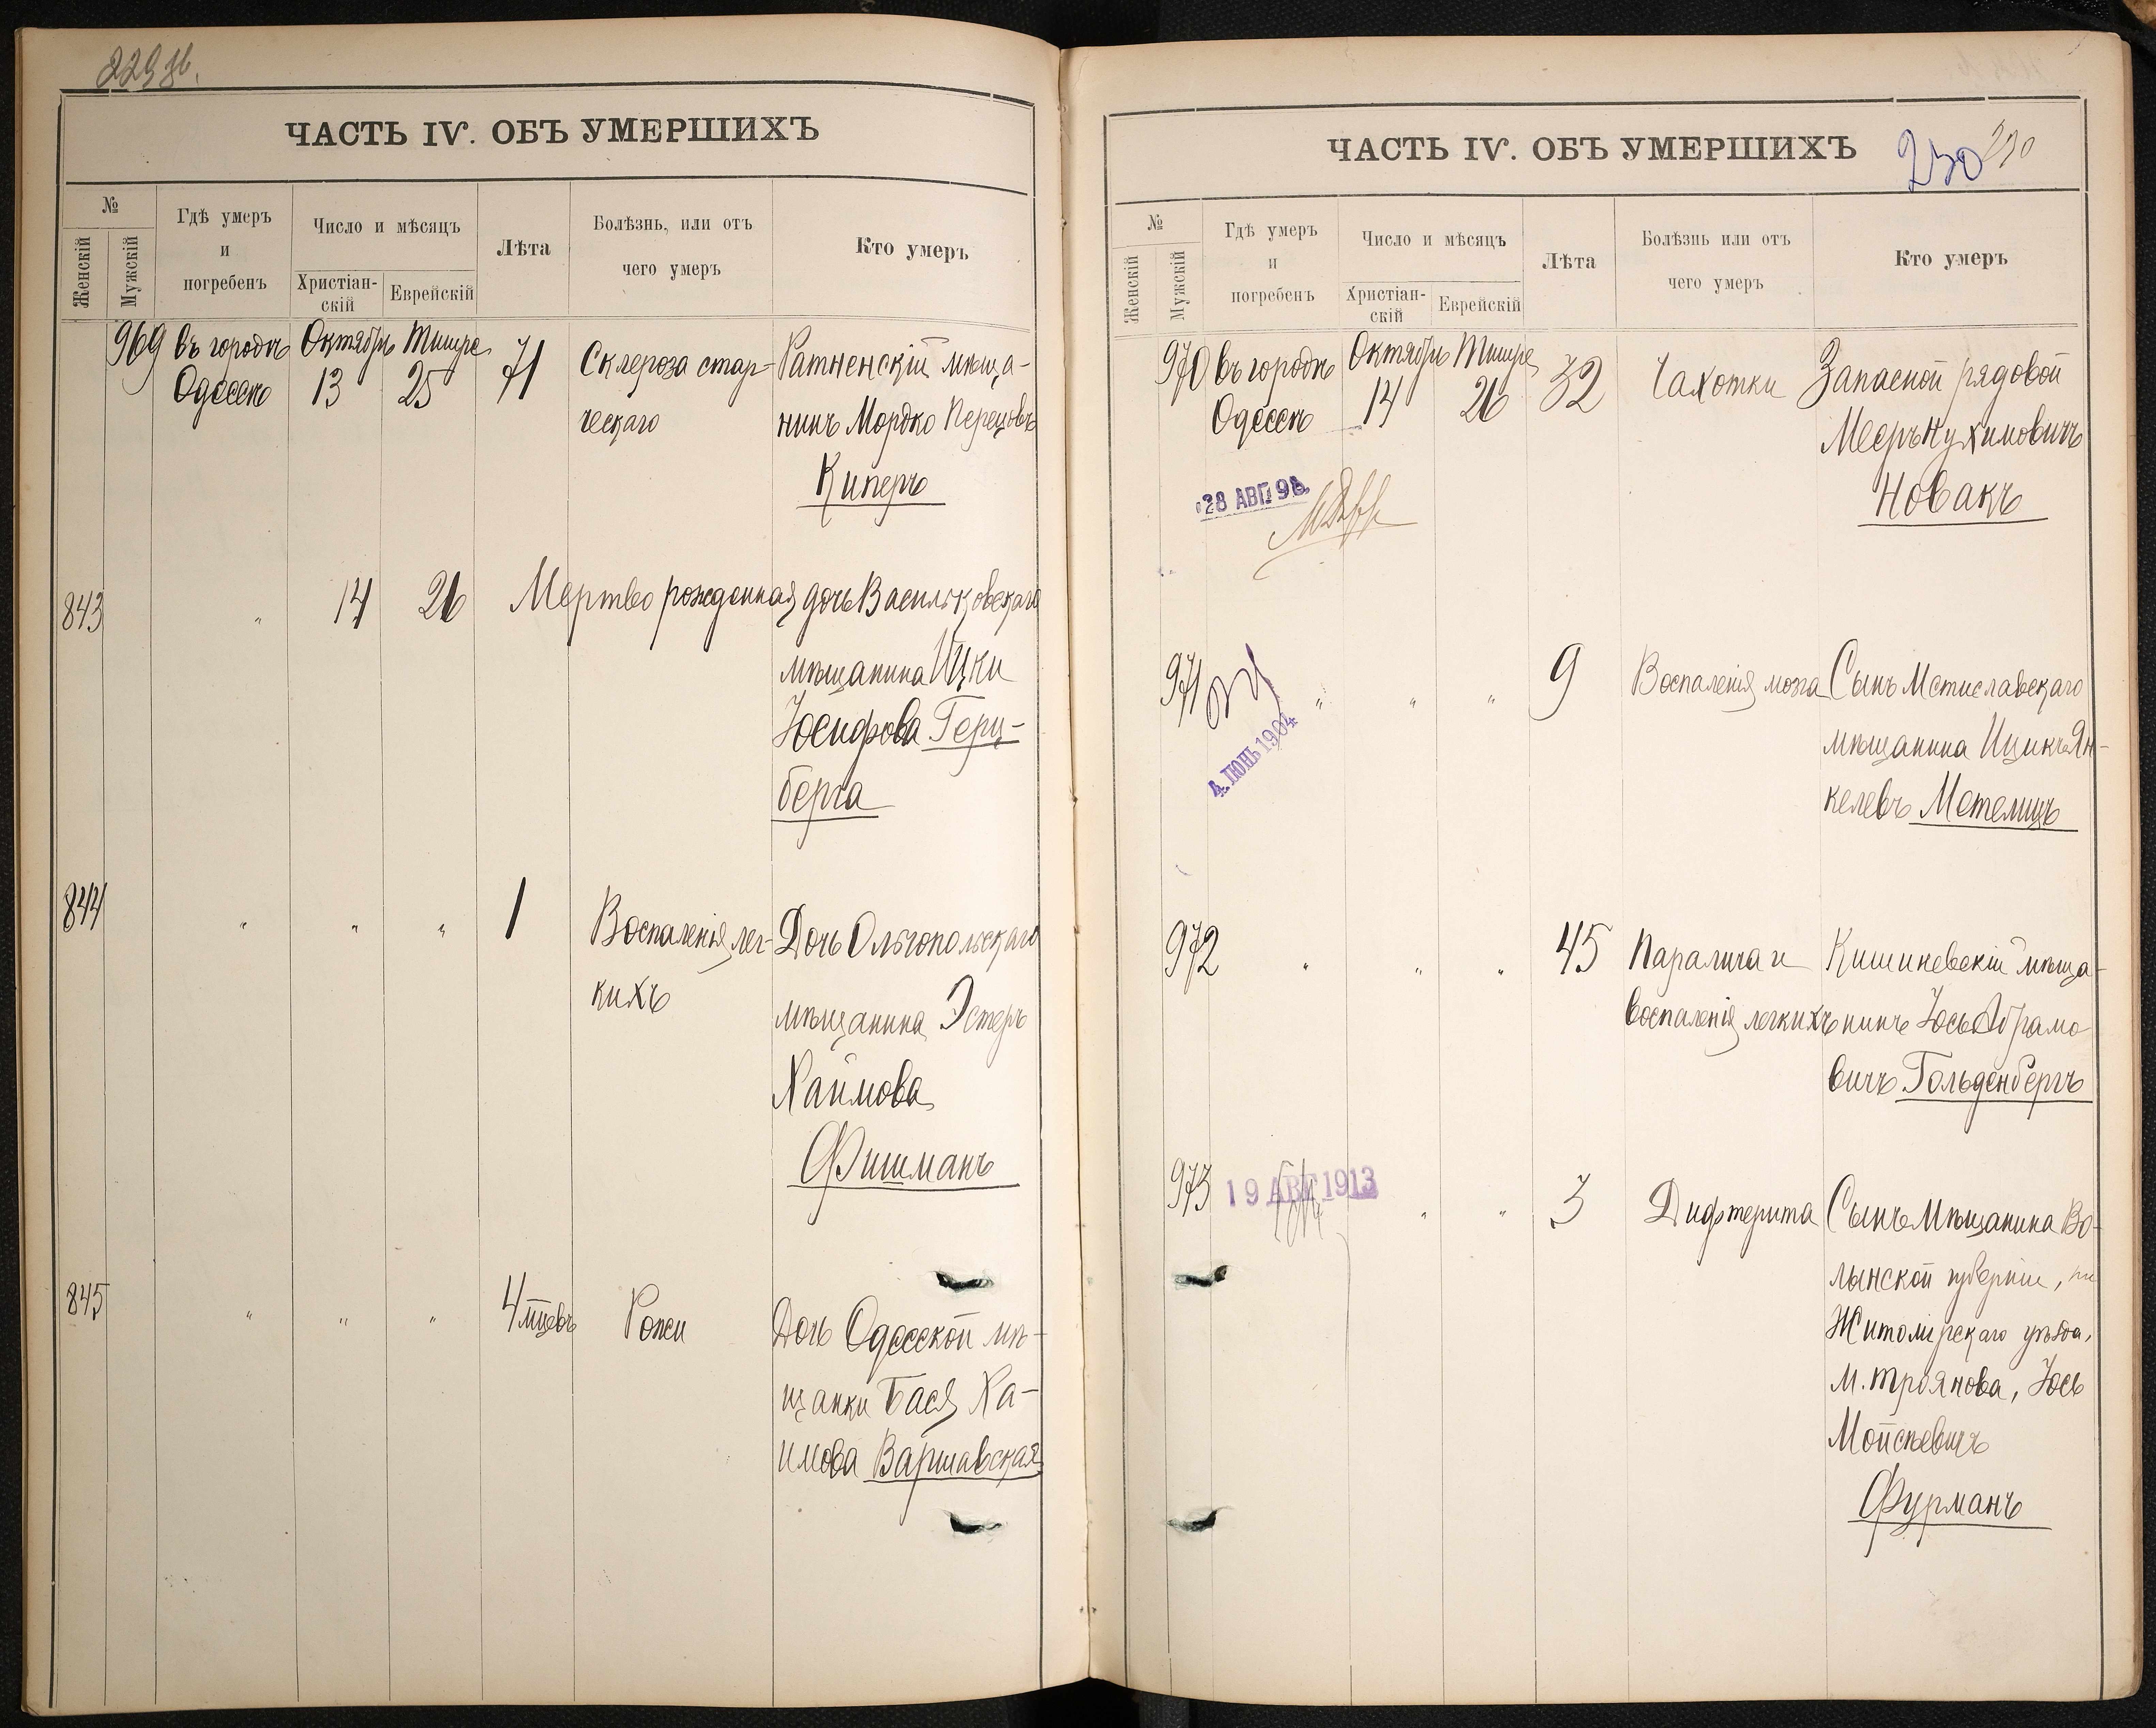 229 об.
ЧАСТЬ IV. ОБЪ УМЕРШИХЪ
№
Женскій
Мужскій
Гдѣ умеръ
и
погребенъ
Число и мѣсяцъ
Христіан-
скій
Еврейскій
Лѣта
Болѣзнь, или отъ
чего умеръ
Кто умеръ
969 въ городѣ Октябрь Тишре 71 Склероза стар- Ратненскій мѣща-
Одессѣ 13 25 ческаго нинъ Мордко Перецовъ
Киперъ
843 " 14 26 Мертво рожденная дочь Васильковскаго
мѣщанина Ицки
Іосифова Герц-
берга
844 " " " 1 Воспаленія лег- Дочь Ольгопольскаго
кихъ мѣщанина Эстеръ
Хаимова
Фишманъ
845 " " " 4 мѣцевъ Рожи Дочь Одесской мѣ-
щанки Бася Ха-
имова Варшавская
ЧАСТЬ IV. ОБЪ УМЕРШИХЪ
230 230
№
Женскій
Мужскій
Гдѣ умеръ
и
погребенъ
Число и мѣсяцъ
Христіан-
скій
Еврейскій
Лѣта
Болѣзнь или отъ
чего умеръ
Кто умеръ
970 въ городѣ Октябрь Тишре 32 Чахотки Запасной рядовой
Одессѣ 14 26 Мееръ Нухимовичъ
Новакъ
28 АВГ. 98.
971 " " " 9 Воспаленія мозга Сынъ Мстиславскаго
мѣщанина Ицикъ Ян-
келевъ Метелицъ
4. ІЮНЬ 1904
972 " " " 45 Паралича и Кишиневскій мѣща-
воспаленія легкихъ нинъ Іось Абрамо
вичъ Гольденбергъ
973 19 АВГ 1913 " " 3 Дифтерита Сынъ мѣщанина Во-
лынской губерніи,
Житомірскаго уѣзда,
м. Троянова, Іось
Моисѣевичъ
Фурманъ